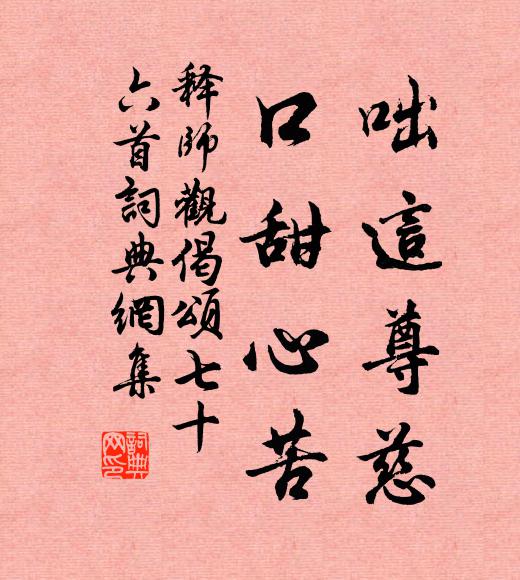 咄這尊慈
口甜心苦
释師觀偈頌七十
六首詞典網集
詞典
网印